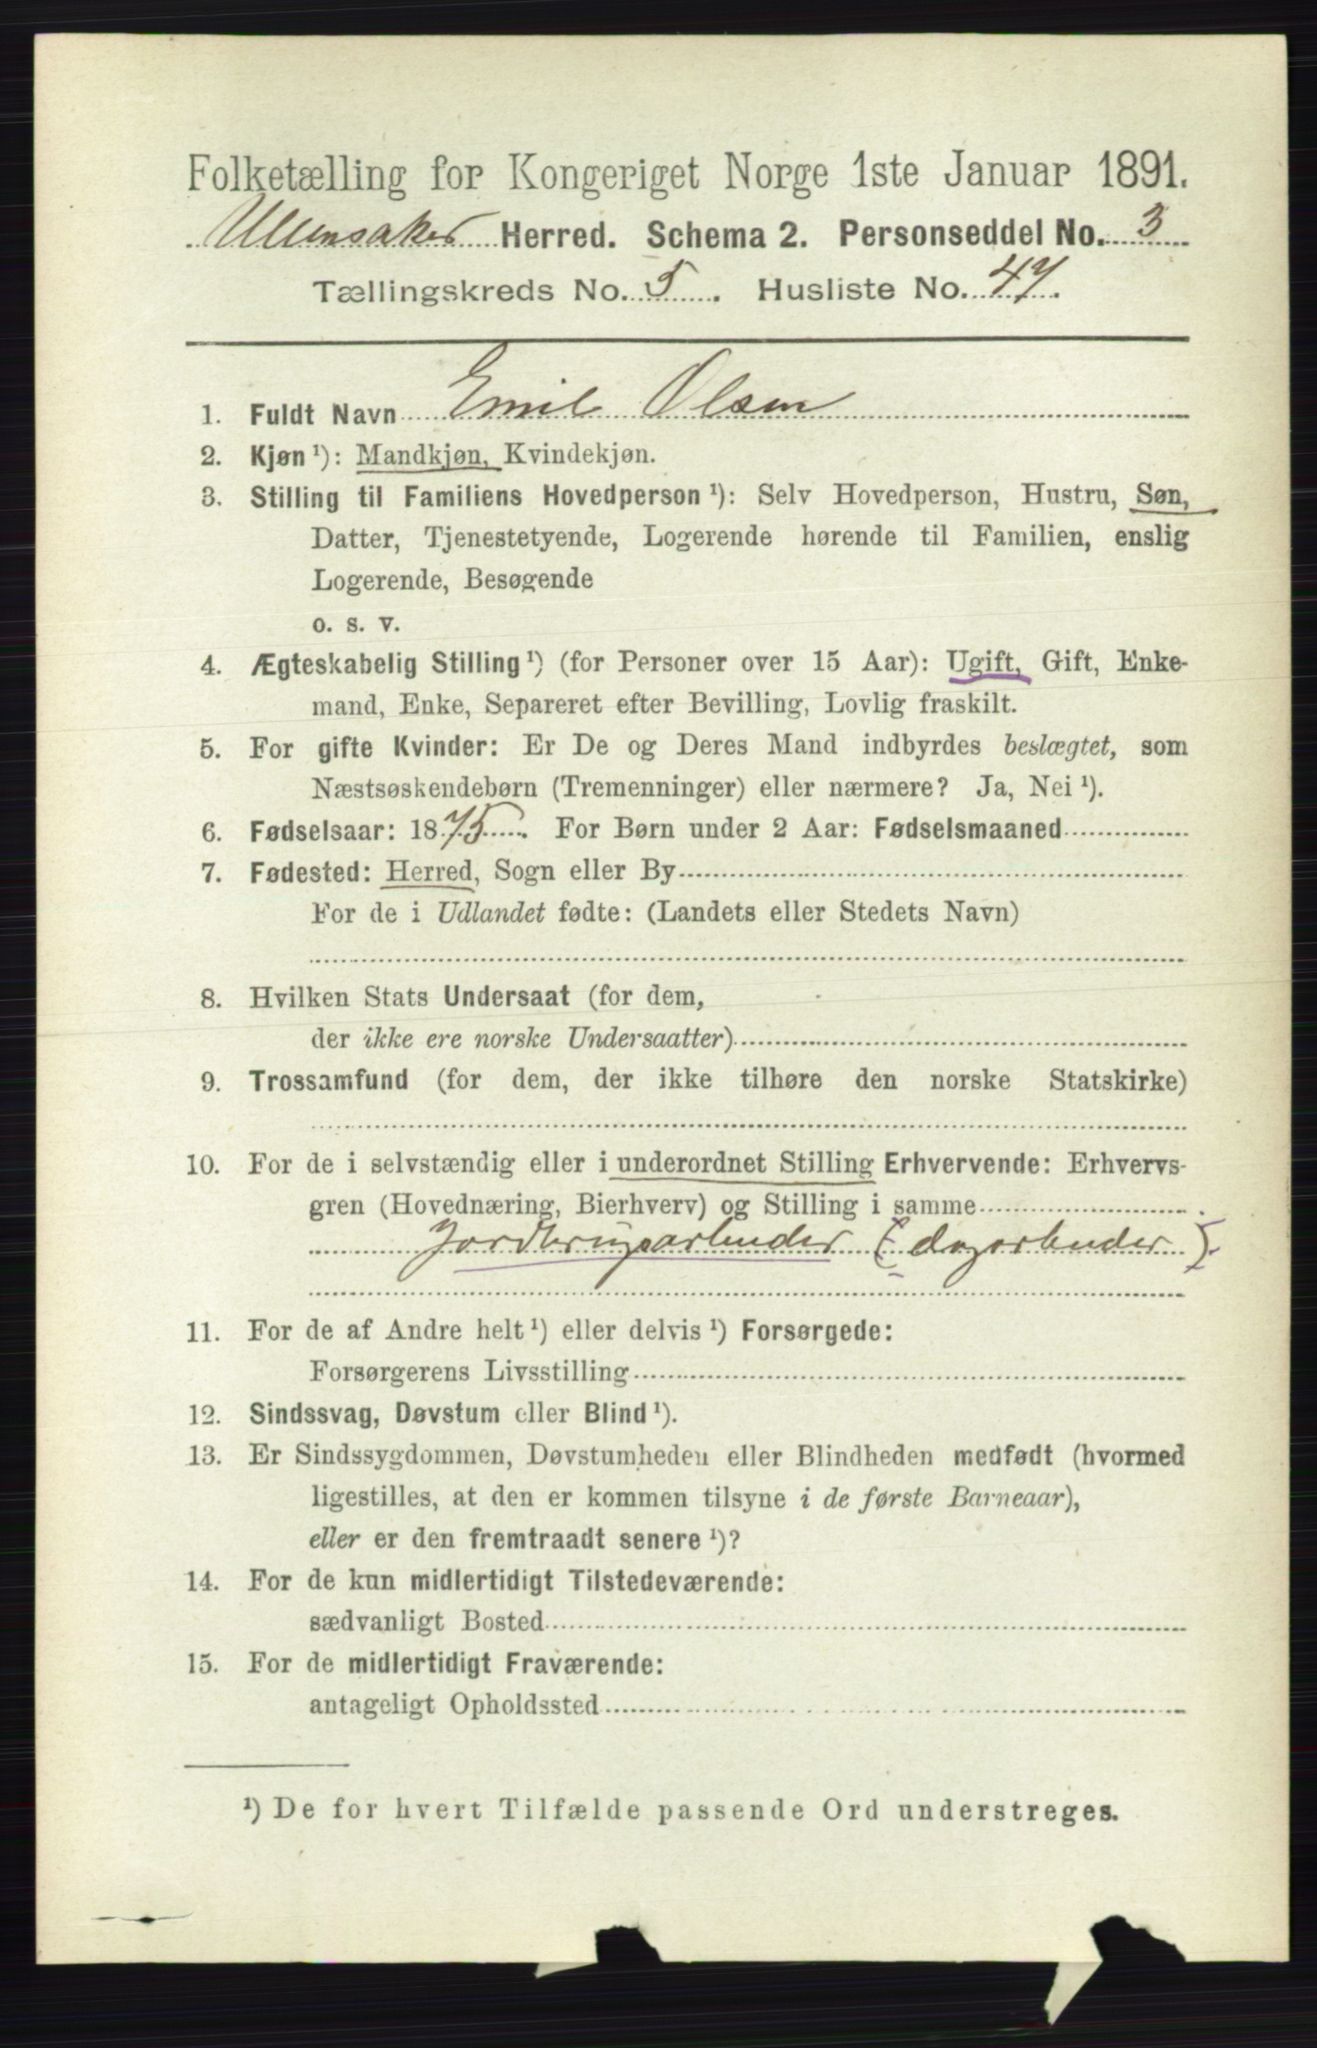 Folketælling for Kongeriget Norge 1ste Januar 1891.
Ullensaker Herred. Schema 2. Personseddel No. 3
Tællingskreds No. 5. Husliste No. 47.
1. Fuldt Navn Emil Olsen
2. Kjøn¹): Mandkjøn, Kvindekjøn.
3. Stilling til Familiens Hovedperson¹): Selv Hovedperson, Hustru, Søn,
Datter, Tjenestetyende, Logerende hørende til Familien, enslig
Logerende, Besøgende
o. s. v.
4. Ægteskabelig Stilling¹) (for Personer over 15 Aar): Ugift, Gift, Enke-
mand, Enke, Separeret efter Bevilling, Lovlig fraskilt.
5. For gifte Kvinder: Er De og Deres Mand indbyrdes beslægtet, som
Næstsøskendebørn (Tremenninger) eller nærmere? Ja, Nei¹).
6. Fødselsaar: 1875. For Børn under 2 Aar: Fødselsmaaned
7. Fødested: Herred, Sogn eller By
For de i Udlandet fødte: (Landets eller Stedets Navn)
8. Hvilken Stats Undersaat (for dem,
der ikke ere norske Undersaatter)
9. Trossamfund (for dem, der ikke tilhøre den norske Statskirke)
10. For de i selvstændig eller i underordnet Stilling Erhvervende: Erhvervs-
gren (Hovednæring, Bierhverv) og Stilling i samme
Jordbrugsarbeider (dagarbeider).
11. For de af Andre helt¹) eller delvis¹) Forsørgede:
Forsørgerens Livsstilling
12. Sindssvag, Døvstum eller Blind¹).
13. Er Sindssygdommen, Døvstumheden eller Blindheden medfødt (hvormed
ligestilles, at den er kommen tilsyne i de første Barneaar),
eller er den fremtraadt senere¹)?
14. For de kun midlertidigt Tilstedeværende:
sædvanligt Bosted
15. For de midlertidigt Fraværende:
antageligt Opholdssted
¹) De for hvert Tilfælde passende Ord understreges.